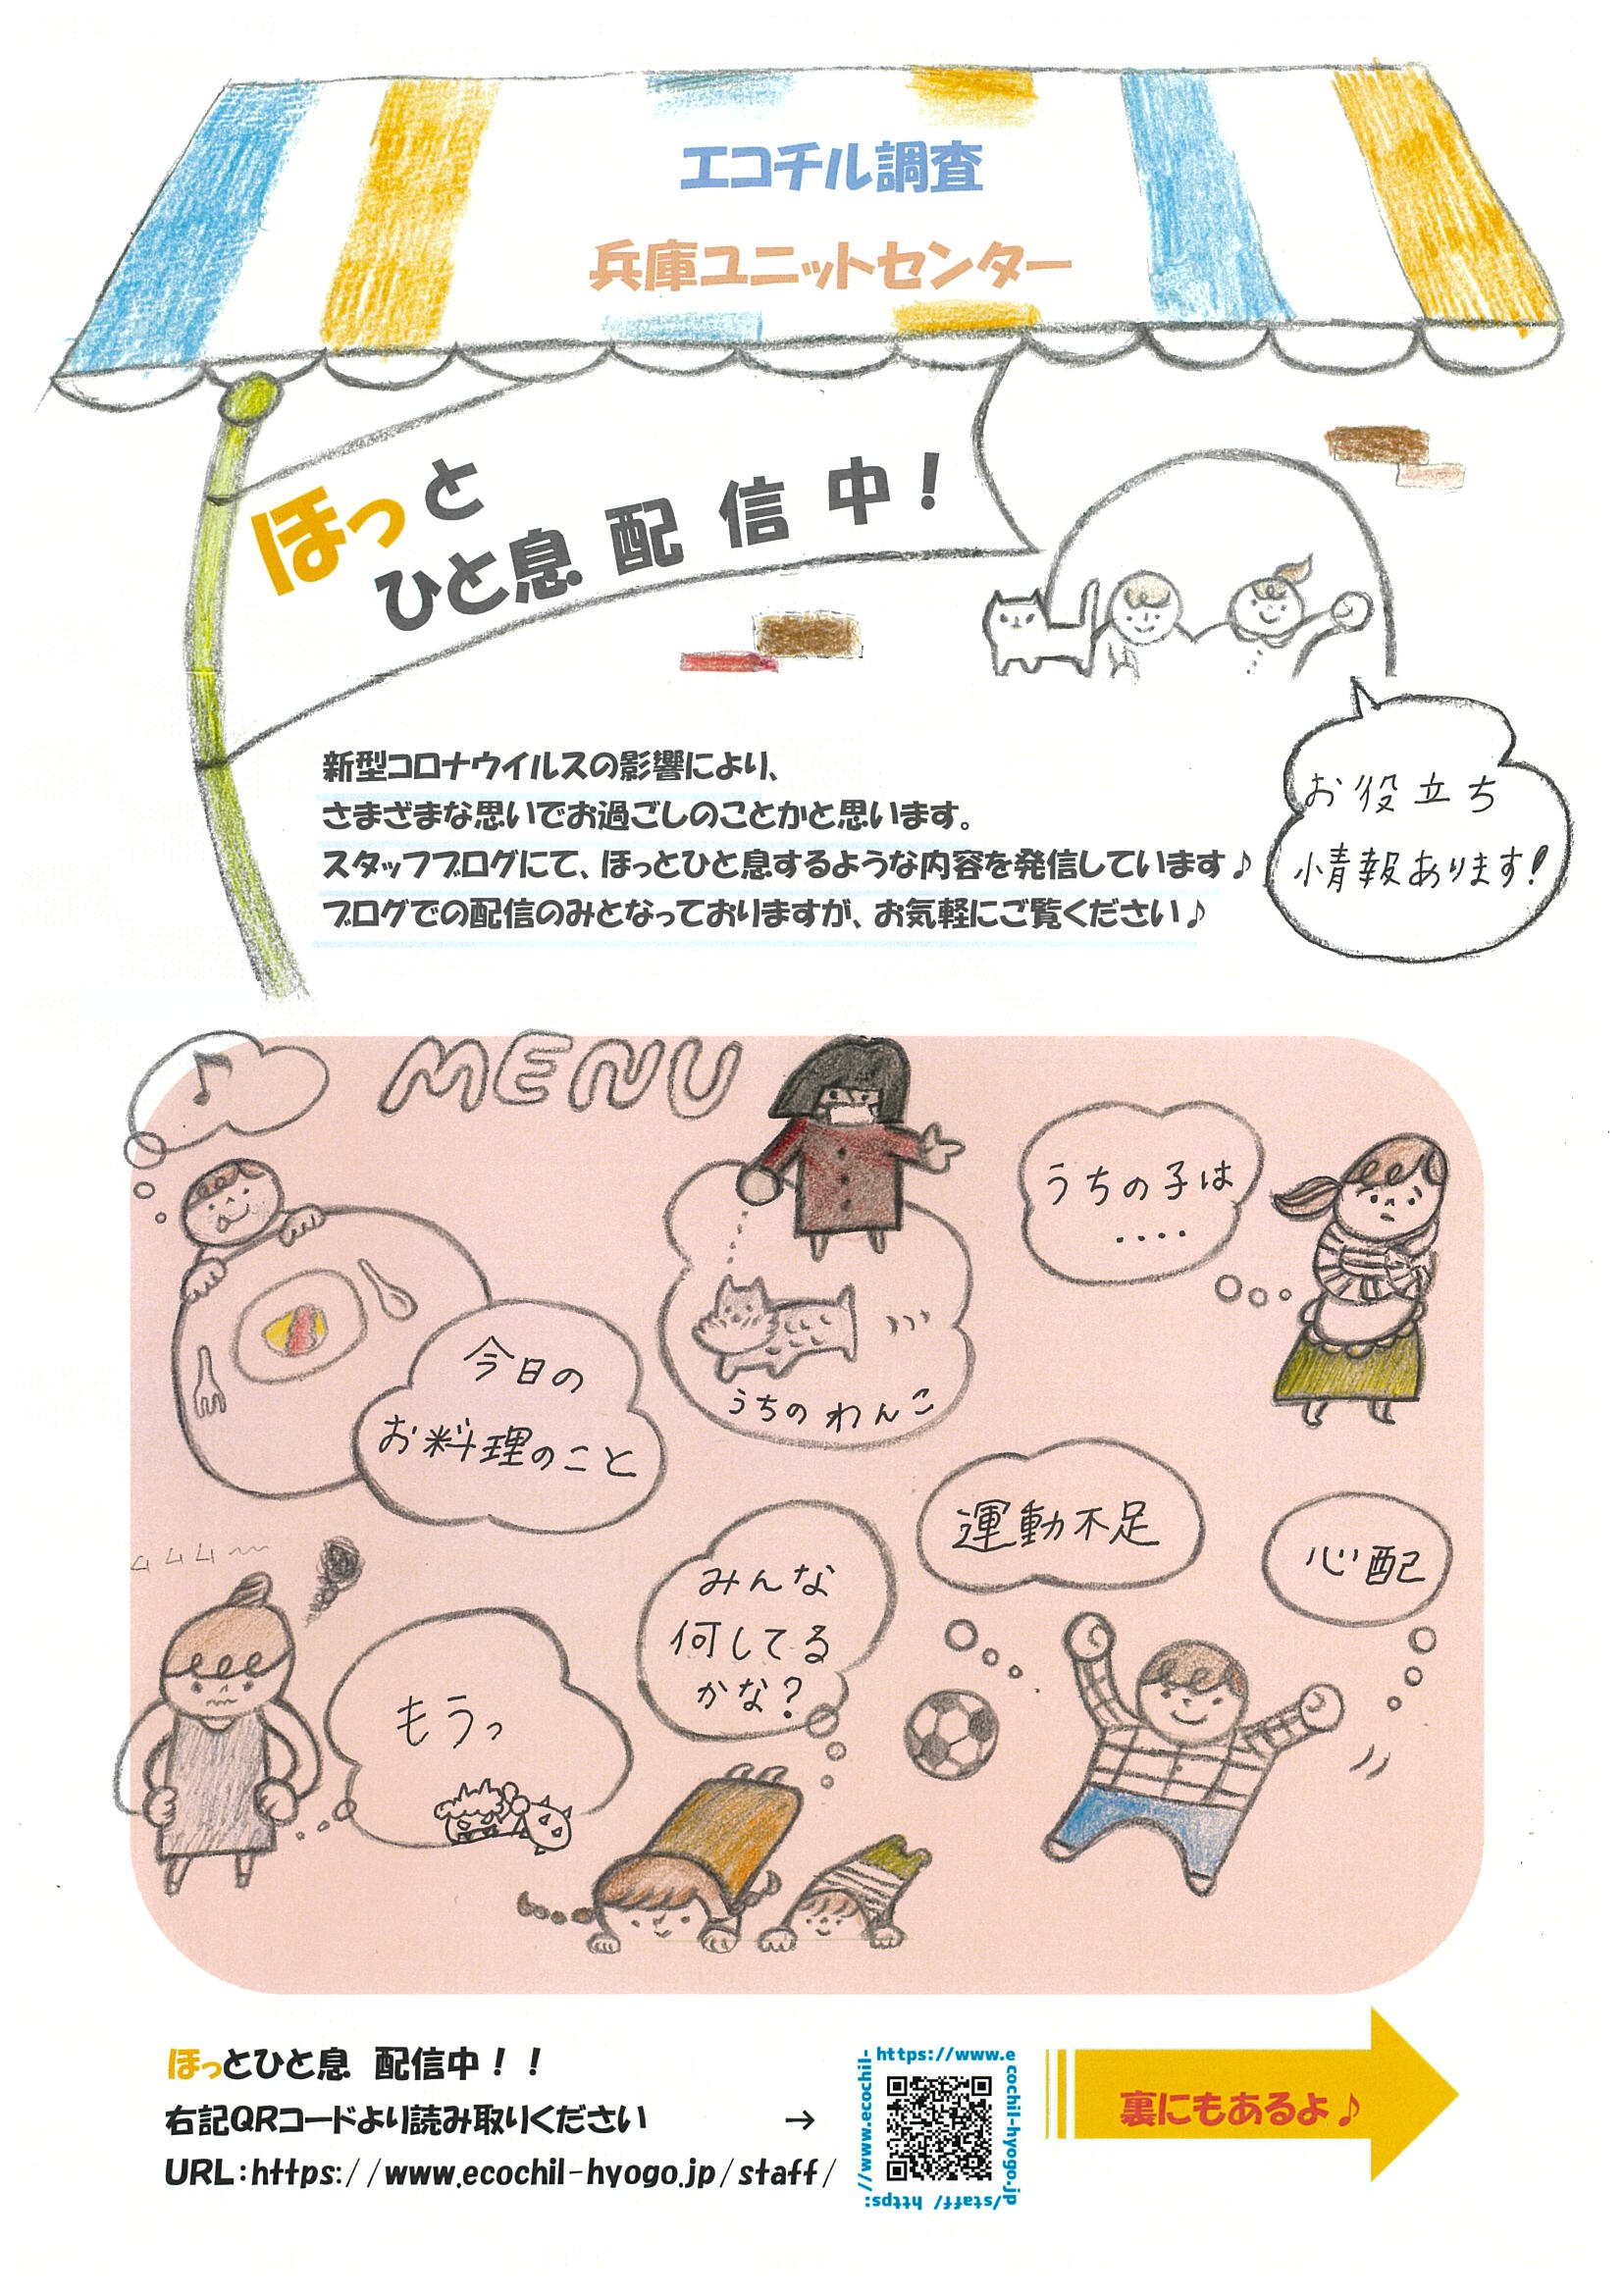 エコチル調査
兵庫ユニットセンター
ほっと
ひと息 配信中！
新型コロナウイルスの影響により、
さまざまな思いでお過ごしのことかと思います。
スタッフブログにて、ほっとひと息するような内容を発信しています♪
ブログでの配信のみとなっておりますが、お気軽にご覧ください♪
お役立ち
情報あります！
MENU
♪
うちの子は
····
今日の
お料理のこと
うちのわんこ
運動不足
心配
みんな
何してる
かな？
もうっ
ほっとひと息 配信中！！
右記QRコードより読み取りください →
URL：https://www.ecochil-hyogo.jp/staff/
https://www.ecochil-hyogo.jp/staff/ https://www.ecochil-
裏にもあるよ♪